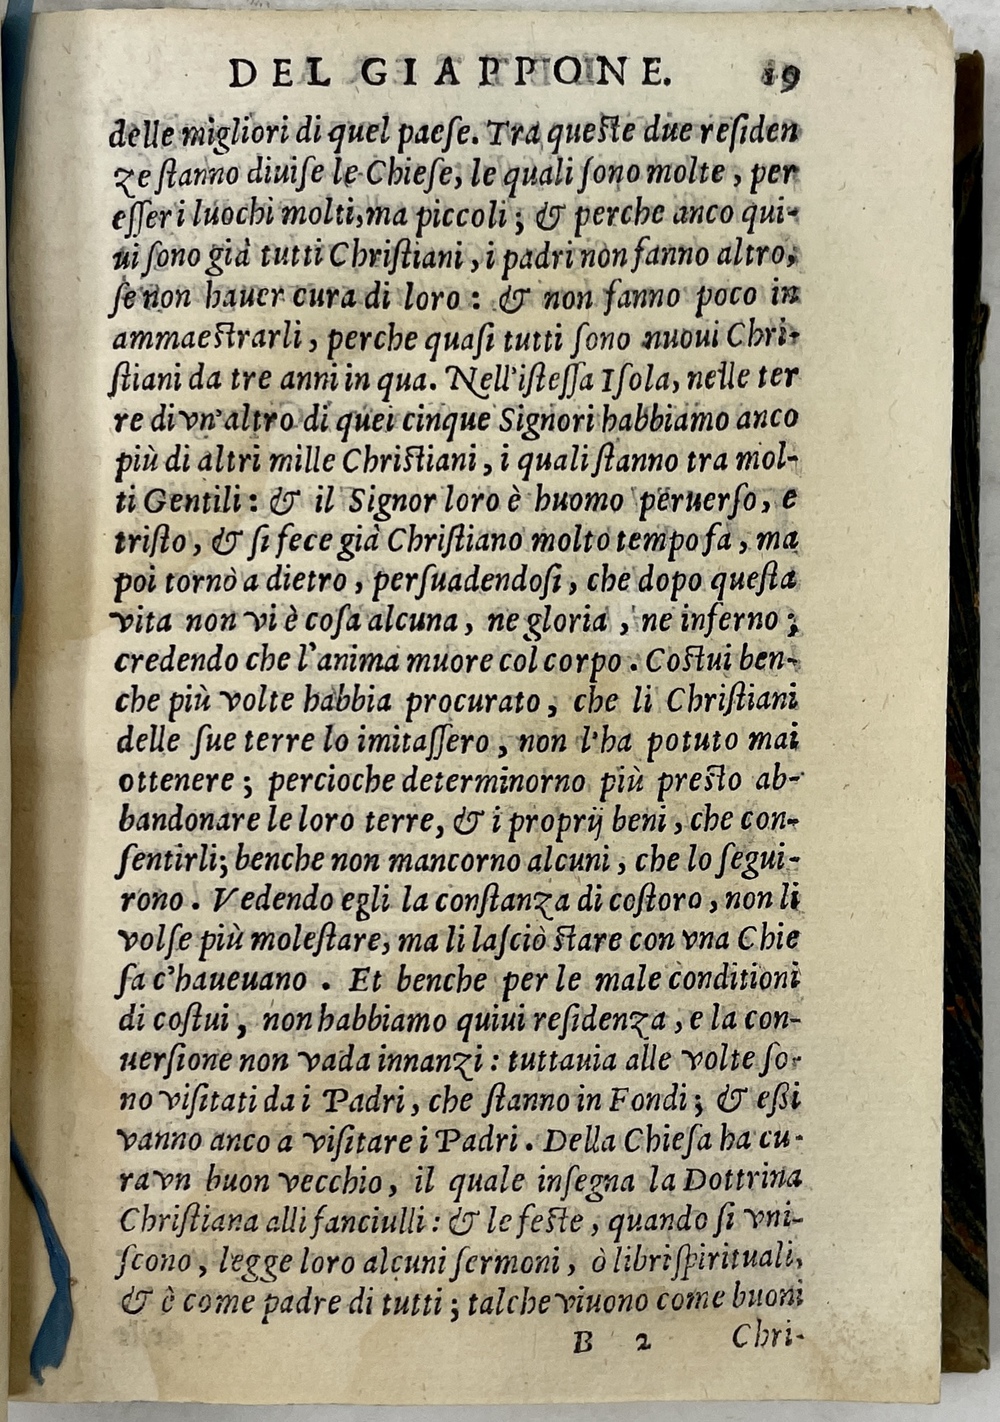 DEL GIAPPONE. 19
delle migliori di quel paeſe. Tra queſte due reſiden
ze ſtanno diuiſe le Chieſe, le quali ſono molte, per
eſſer i luochi molti, ma piccoli; & perche anco qui-
ui ſono già tutti Chriſtiani, i padri non fanno altro,
ſe non hauer cura di loro: & non fanno poco in
ammaeſtrarli, perche quaſi tutti ſono nuoui Chri-
ſtiani da tre anni in qua. Nell'iſteſſa Iſola, nelle ter
re di vn'altro di quei cinque Signori habbiamo anco
più di altri mille Chriſtiani, i quali ſtanno tra mol-
ti Gentili: & il Signor loro è huomo peruerſo, e
triſto, & ſi fece già Chriſtiano molto tempo fa, ma
poi tornò a dietro, perſuadendoſi, che dopo queſta
vita non vi è coſa alcuna, ne gloria, ne inferno;
credendo che l'anima muore col corpo. Coſtui ben-
che più volte habbia procurato, che li Chriſtiani
delle ſue terre lo imitaſſero, non l'ha potuto mai
ottenere; percioche determinorno più preſto ab-
bandonare le loro terre, & i proprij beni, che con-
ſentirli; benche non mancorno alcuni, che lo ſegui-
rono. Vedendo egli la conſtanza di coſtoro, non li
volſe più moleſtare, ma li laſciò ſtare con vna Chie
ſa c'haueuano. Et benche per le male conditioni
di coſtui, non habbiamo quiui reſidenza, e la con-
uerſione non vada innanzi: tuttauia alle volte ſo-
no viſitati da i Padri, che ſtanno in Fondi; & eßi
vanno anco a viſitare i Padri. Della Chieſa ha cu-
ra vn buon vecchio, il quale inſegna la Dottrina
Chriſtiana alli fanciulli: & le feſte, quando ſi vni-
ſcono, legge loro alcuni ſermoni, ò libri ſpirituali,
& è come padre di tutti; talche viuono come buoni
B 2 Chri-